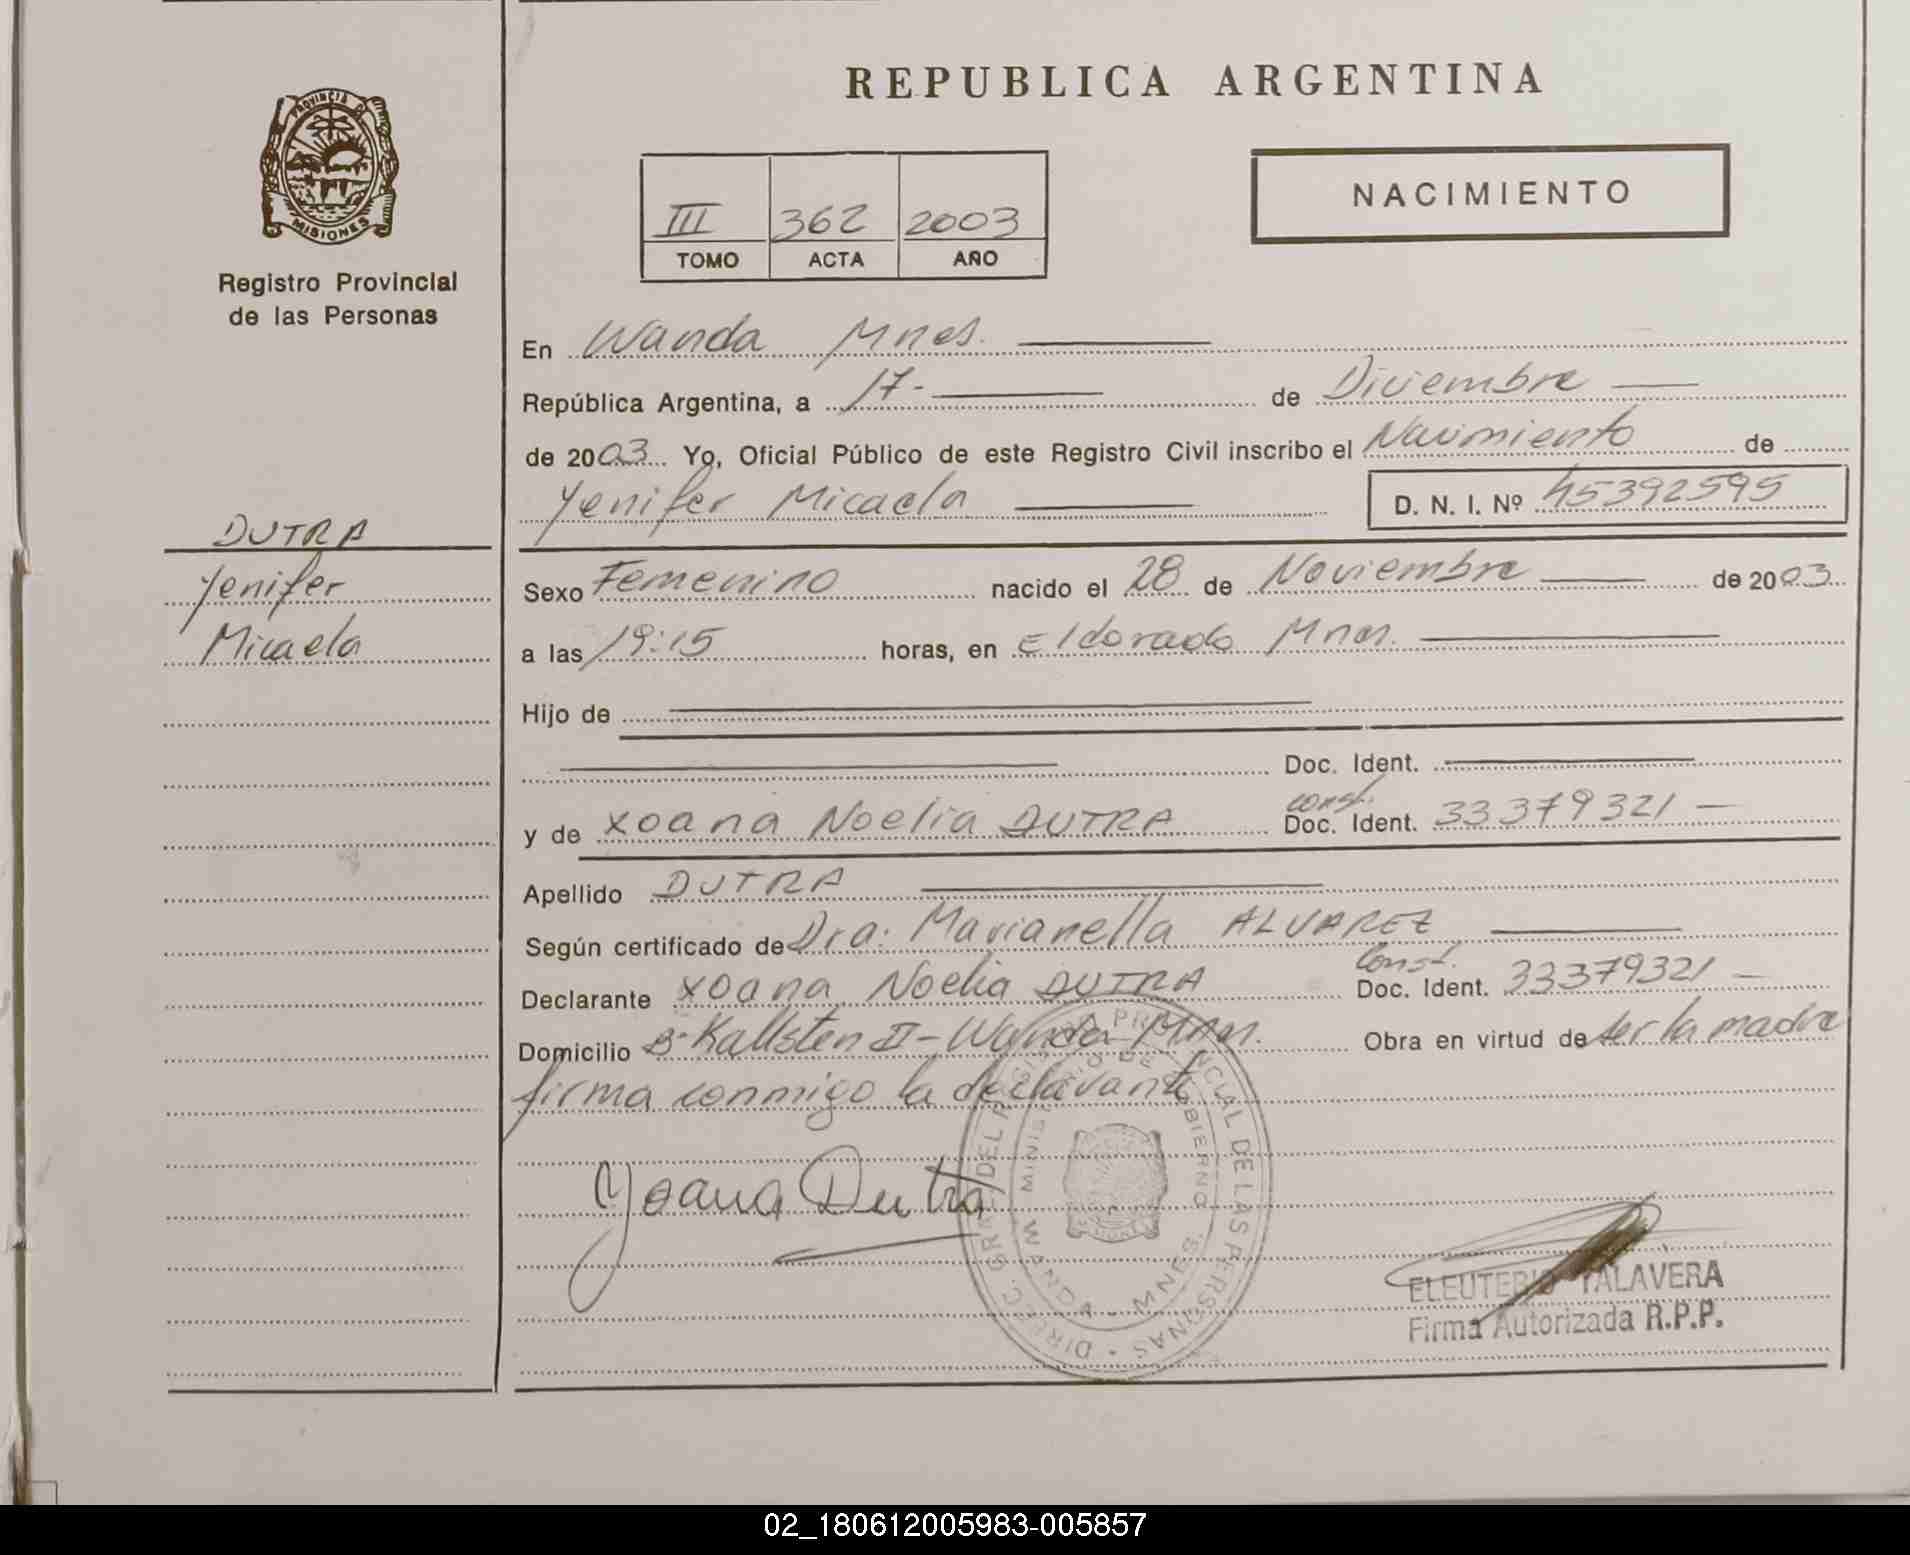 PROVINCIA DE
MISIONES
Registro Provincial
de las Personas
DUTRA
Yenifer
Micaela
REPUBLICA ARGENTINA
NACIMIENTO
III 362 2003
TOMO ACTA AÑO
En Wanda Mnes.
República Argentina, a 17- de Diciembre
de 2003 Yo, Oficial Público de este Registro Civil inscribo el Nacimiento de
Yenifer Micaela D. N. I. Nº 45392595
Sexo Femenino nacido el 28 de Noviembre de 2003
a las 19:15 horas, en Eldorado Mnes.
Hijo de
Doc. Ident.
const.
y de Xoana Noelia DUTRA Doc. Ident. 33379321
Apellido DUTRA
Según certificado de Dra. Marianella ALVAREZ
Const.
Declarante Xoana Noelia DUTRA Doc. Ident. 33379321
Domicilio Bº Kallsten II - Wanda Mnes. Obra en virtud de ser la madre
firma conmigo la declarante
Yoana Dutra
DIREC. GRAL. DEL REGISTRO PROVINCIAL DE LAS PERSONAS
MINISTERIO DE GOBIERNO
WANDA - MNES.
ELEUTERIO TALAVERA
Firma Autorizada R.P.P.
02_180612005983-005857